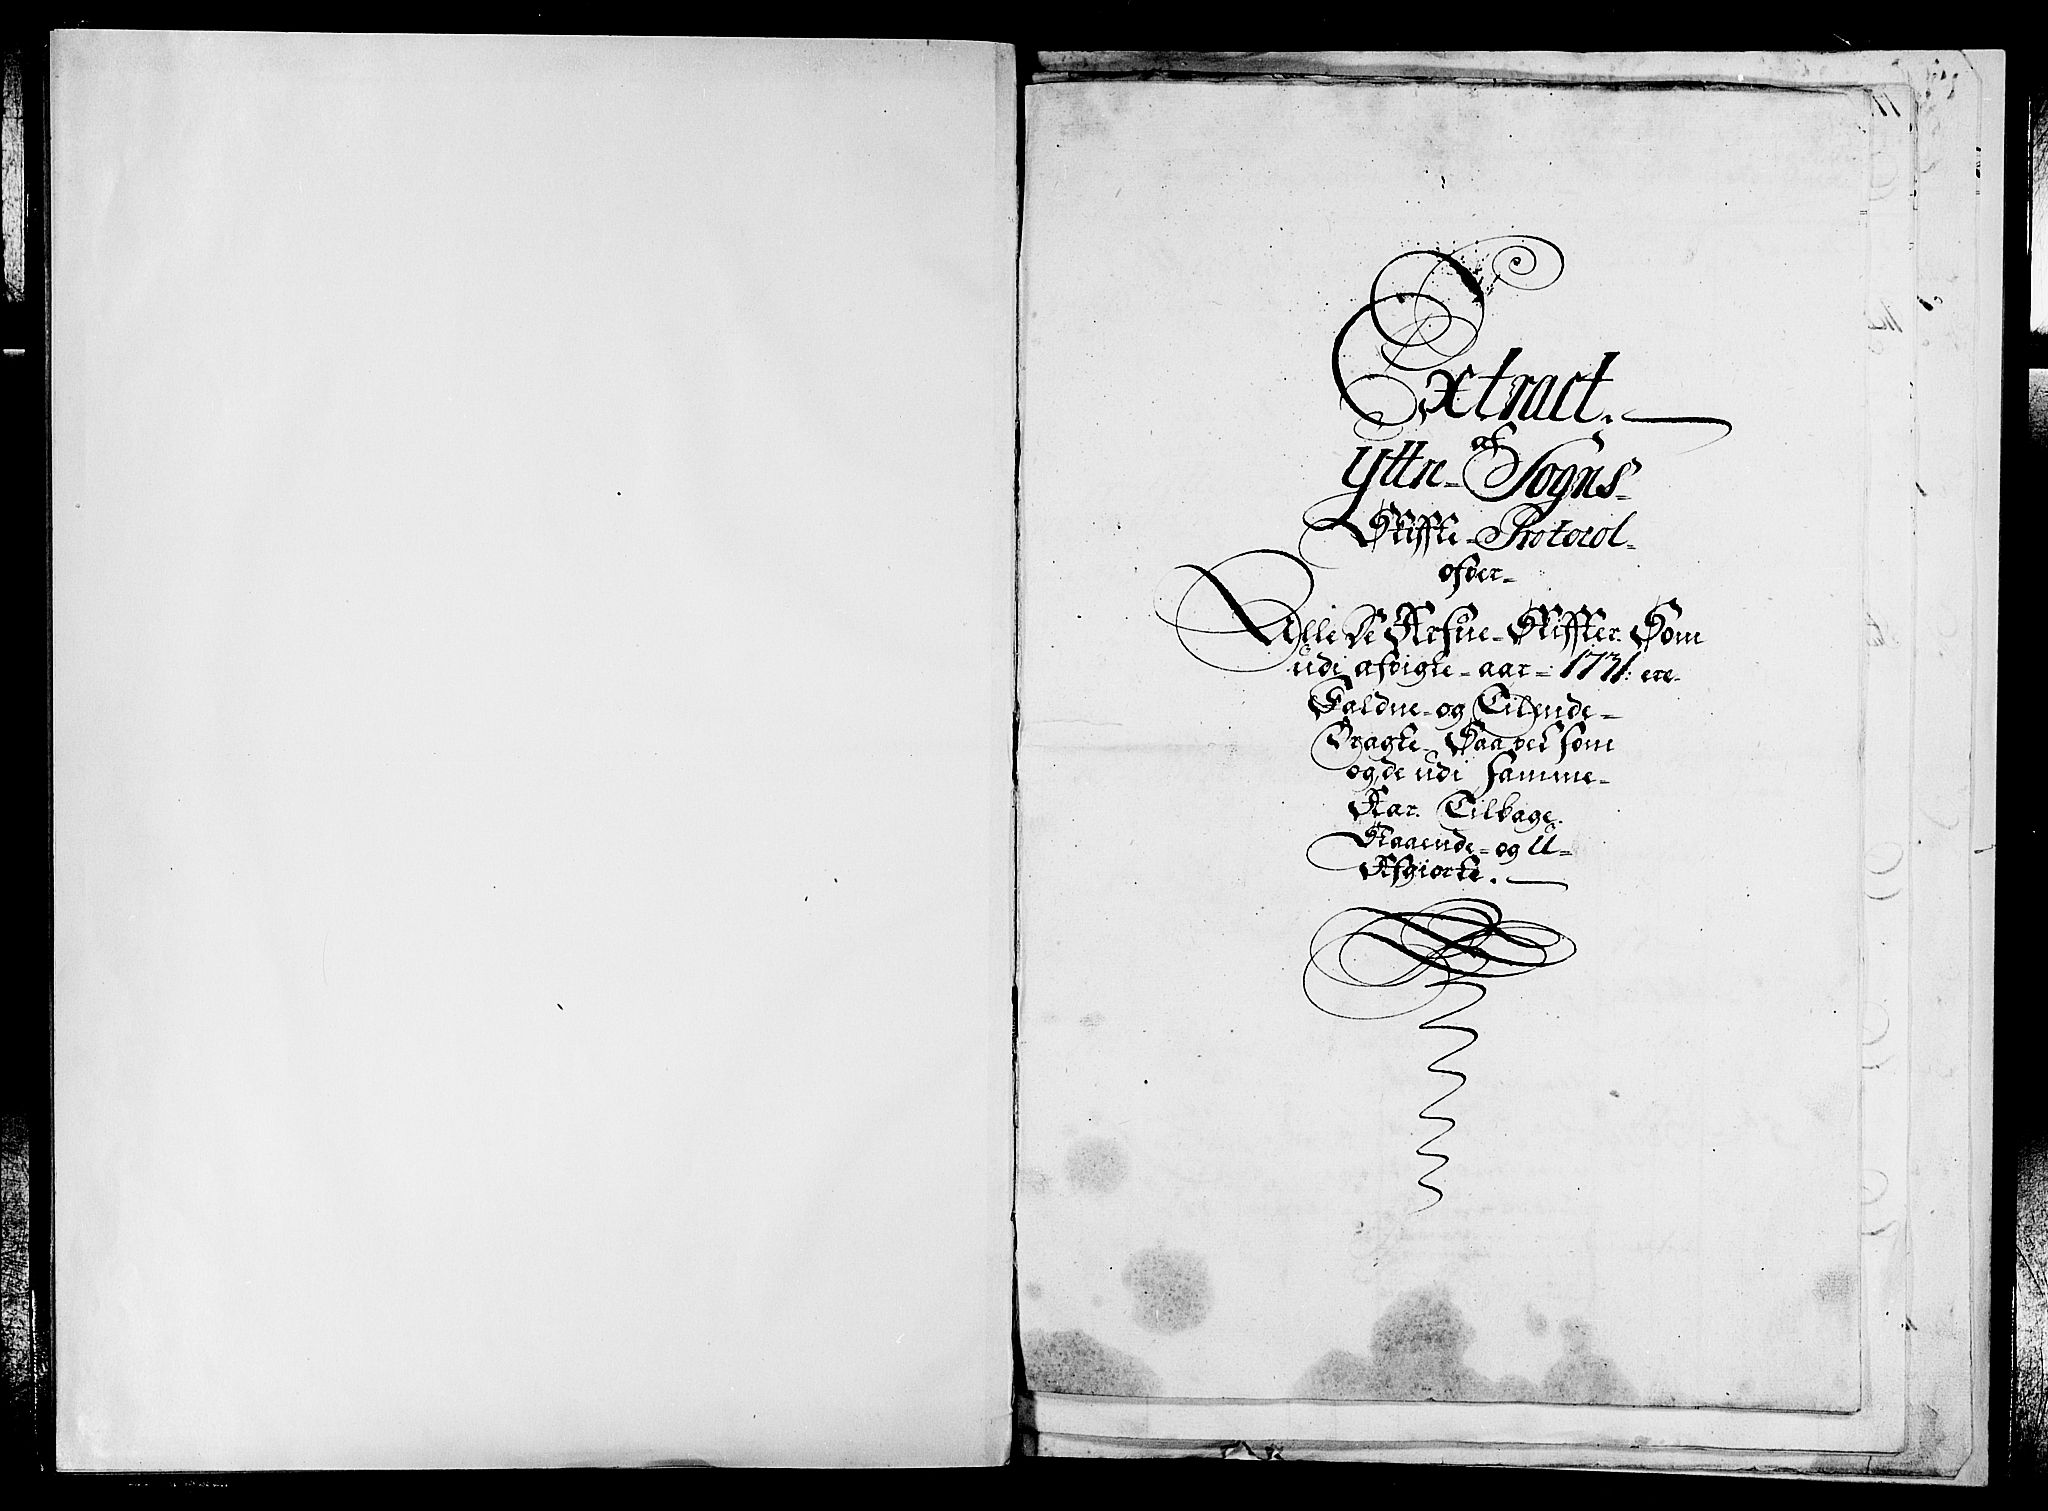 Extract.
af
Yttre- Sogns-
Skiffte- Protocol-
ofver-
Alle De Arfue- Skiffter. Som
udi afvigte- aar-: 1731: ere-
Faldne- og Til Ende-
Bragte- Saavel som
og de udi samme-
Aar. Tilbage.
Staaende- og U-
Afgiorte.